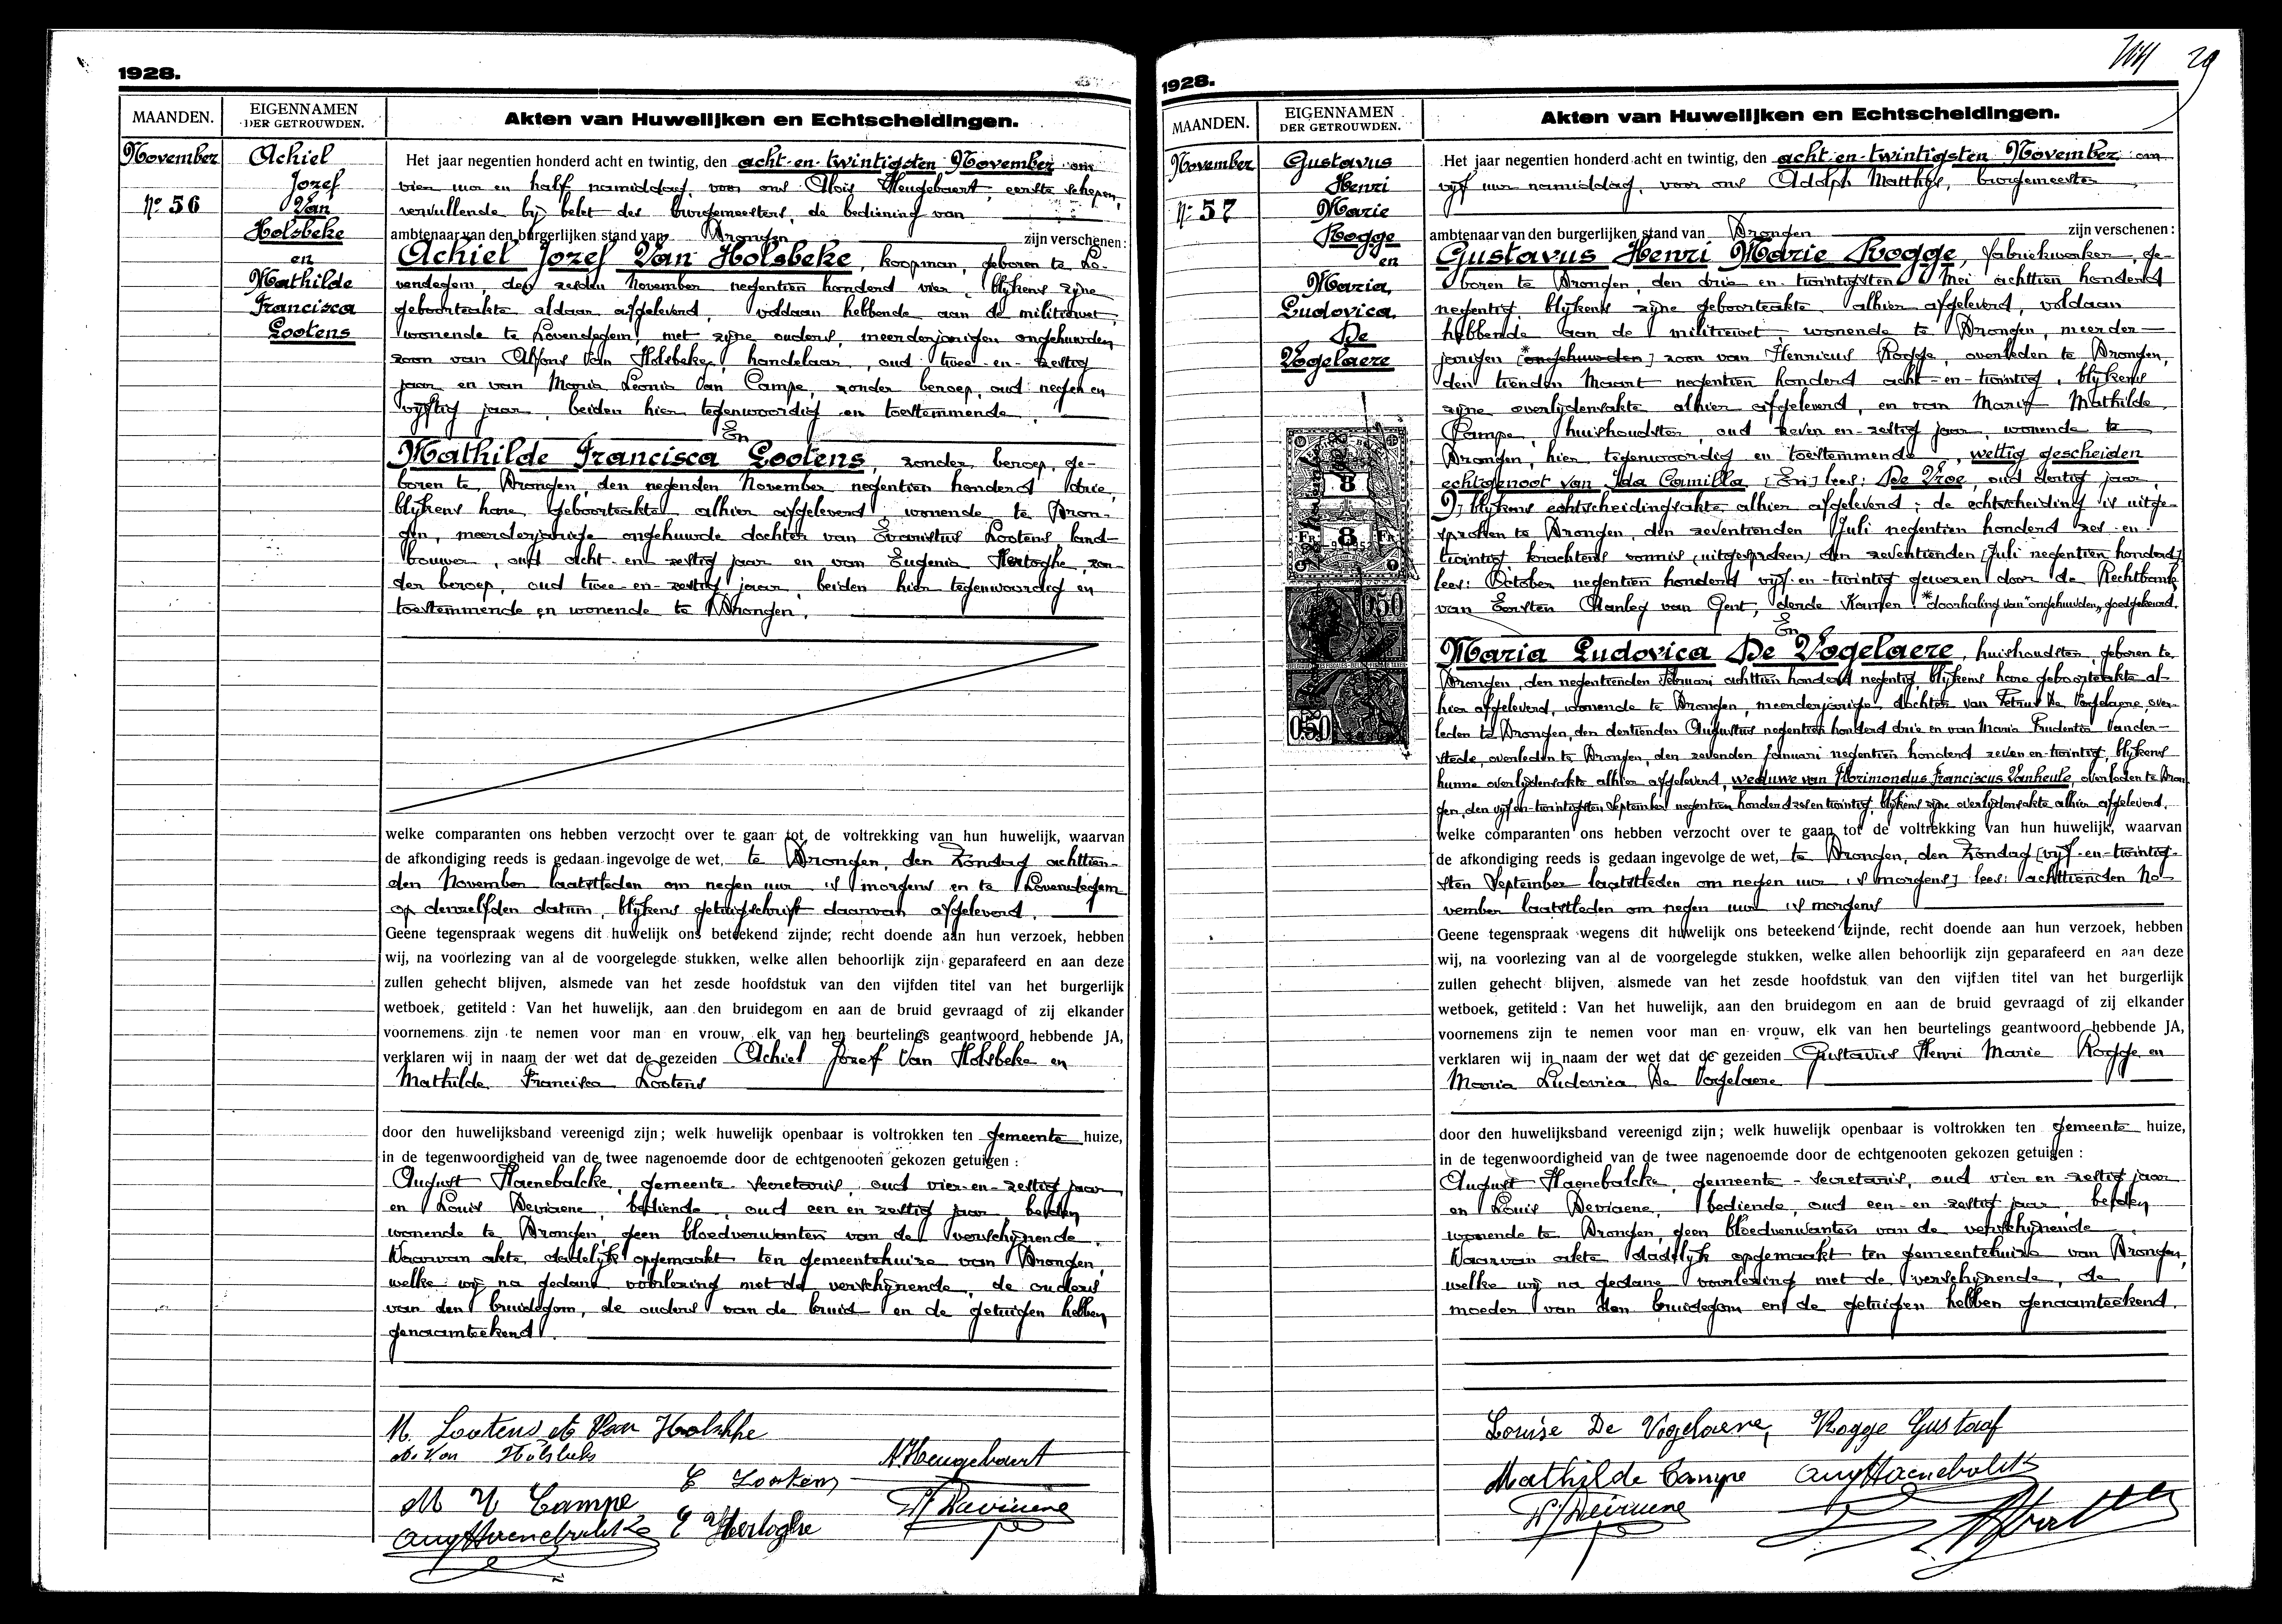 1928.
MAANDEN.
EIGENNAMEN
DER GETROUWDEN.
Akten van Huwelijken en Echtscheidingen.
November
Nr 56
Achiel
Jozef
Van
Holsbeke
en
Mathilde
Francisca
Lootens
Het jaar negentien honderd acht en twintig, den acht-en-twintigsten November om
vier uur en half namiddag, voor ons Aloïs Heugebaert, eerste schepen,
vervullende bij belet des burgemeesters, de bediening van
ambtenaar van den burgerlijken stand van Drongen zijn verschenen:
Achiel Jozef Van Holsbeke, koopman, geboren te Lo-
vendegem, den zesden November negentien honderd vier, blijkens zijne
geboorteakte aldaar afgeleverd, voldaan hebbende aan de militiewet,
wonende te Lovendegem, met zijne ouders, meerderjarigen ongehuwden
zoon van Alfons Van Holsbeke, handelaar, oud twee-en-zestig
jaar en van Maria Leonia Van Campe, zonder beroep, oud negen en
vijftig jaar, beiden hier tegenwoordig en toestemmende.
En
Mathilde Francisca Lootens, zonder beroep, ge-
boren te Drongen, den negenden November negentien honderd drie,
blijkens hare geboorteakte alhier afgeleverd, wonende te Dron-
gen, meerderjarige ongehuwde dochter van Evaristus Lootens, land-
bouwer, oud acht-en-zestig jaar en van Eugenia Hertoghe, zon-
der beroep, oud twee-en-zestig jaar, beiden hier tegenwoordig en
toestemmende en wonende te Drongen.
welke comparanten ons hebben verzocht over te gaan tot de voltrekking van hun huwelijk, waarvan
de afkondiging reeds is gedaan ingevolge de wet, te Drongen, den Zondag achttien-
den November laatstleden om negen uur 's morgens en te Lovendegem
op denzelfden datum, blijkens getuigschrift daarvan afgeleverd.
Geene tegenspraak wegens dit huwelijk ons beteekend zijnde, recht doende aan hun verzoek, hebben
wij, na voorlezing van al de voorgelegde stukken, welke allen behoorlijk zijn geparafeerd en aan deze
zullen gehecht blijven, alsmede van het zesde hoofdstuk van den vijfden titel van het burgerlijk
wetboek, getiteld: Van het huwelijk, aan den bruidegom en aan de bruid gevraagd of zij elkander
voornemens zijn te nemen voor man en vrouw, elk van hen beurtelings geantwoord hebbende JA,
verklaren wij in naam der wet dat de gezeiden Achiel Jozef Van Holsbeke en
Mathilde Francisca Lootens
door den huwelijksband vereenigd zijn; welk huwelijk openbaar is voltrokken ten gemeente huize,
in de tegenwoordigheid van de twee nagenoemde door de echtgenooten gekozen getuigen:
August Haenebalcke, gemeente-secretaris, oud vier-en-zestig jaar
en Louis Deviaene, bediende, oud een en zestig jaar, beiden
wonende te Drongen, geen bloedverwanten van de verschijnende.
Waarvan akte dadelijk opgemaakt ten gemeentehuize van Drongen,
welke wij na gedane voorlezing met de verschijnende, de ouders
van den bruidegom, de ouders van de bruid en de getuigen hebben
genaamteekend.
M. Lootens A Van Holsbeke
A. Van Holsbeke
A. Heugebaert
E Lootens
M V Campe
E Hertoghe
Aug Haenebalcke
1928.
29
MAANDEN.
EIGENNAMEN
DER GETROUWDEN.
Akten van Huwelijken en Echtscheidingen.
November
Nr 57
Gustavus
Henri
Marie
Rogge
en
Maria
Ludovica
De
Vogelaere
8
8
FR
FR
0.50
0.50
Het jaar negentien honderd acht en twintig, den acht-en-twintigsten November om
vijf uur namiddag, voor ons Adolph Matthys, burgemeester
ambtenaar van den burgerlijken stand van Drongen zijn verschenen:
Gustavus Henri Marie Rogge, fabriekwerker, ge-
boren te Drongen, den drie en twintigsten Mei achttien honderd
negentig, blijkens zijne geboorteakte alhier afgeleverd, voldaan
hebbende aan de militiewet, wonende te Drongen, meerder-
jarigen [*ongehuwden] zoon van Henricus Rogge, overleden te Drongen,
den tienden Maart negentien honderd acht-en-twintig, blijkens
zijne overlijdensakte alhier afgeleverd, en van Maria Mathilde
Campe, huishoudster, oud zeven en-zestig jaar, wonende te
Drongen, hier tegenwoordig en toestemmende, wettig gescheiden
echtgenoot van Ida Camilla [En] lees: De Vroe, oud dertig jaar,
blijkens echtscheidingsakte alhier afgeleverd; de echtscheiding is uitge-
sproken te Drongen, den zeventienden Juli negentien honderd zes-en-
twintig, krachtens vonnis (uitgesproken) den zeventienden [Juli negentien honderd]
lees: October negentien honderd vijf-en-twintig gewezen door de Rechtbank
van Eersten Aanleg van Gent, derde Kamer. *doorhaling van "ongehuwden" goedgekeurd.
En
Maria Ludovica De Vogelaere, huishoudster, geboren te
Drongen, den negentienden Februari achttien honderd negentig, blijkens hare geboorteakte al-
hier afgeleverd, wonende te Drongen, meerderjarige dochter van Petrus De Vogelaere, over-
leden te Drongen, den dertienden Augustus negentien honderd drie en van Maria Prudentia Vander-
stede, overleden te Drongen, den zevenden Januari negentien honderd zeven en-twintig, blijkens
hunne overlijdensakte alhier afgeleverd, weduwe van Florimondus Franciscus Vanheule, overleden te Dron-
gen, den vijf-en-twintigsten September negentien honderd zes en twintig, blijkens zijne overlijdensakte alhier afgeleverd.
welke comparanten ons hebben verzocht over te gaan tot de voltrekking van hun huwelijk, waarvan
de afkondiging reeds is gedaan ingevolge de wet, te Drongen, den Zondag [vijf-en-twintig-
sten September laatstleden om negen uur 's morgens] lees: achttienden No-
vember laatstleden om negen uur 's morgens
Geene tegenspraak wegens dit huwelijk ons beteekend zijnde, recht doende aan hun verzoek, hebben
wij, na voorlezing van al de voorgelegde stukken, welke allen behoorlijk zijn geparafeerd en aan deze
zullen gehecht blijven, alsmede van het zesde hoofdstuk van den vijfden titel van het burgerlijk
wetboek, getiteld: Van het huwelijk, aan den bruidegom en aan de bruid gevraagd of zij elkander
voornemens zijn te nemen voor man en vrouw, elk van hen beurtelings geantwoord hebbende JA,
verklaren wij in naam der wet dat de gezeiden Gustavus Henri Marie Rogge en
Maria Ludovica De Vogelaere
door den huwelijksband vereenigd zijn; welk huwelijk openbaar is voltrokken ten gemeente huize,
in de tegenwoordigheid van de twee nagenoemde door de echtgenooten gekozen getuigen:
August Haenebalcke, gemeente-secretaris, oud vier en zestig jaar
en Louis Deviaene, bediende, oud een-en-zestig jaar, beiden
wonende te Drongen, geen bloedverwanten van de verschijnende.
Waarvan akte dadelijk opgemaakt ten gemeentehuize van Drongen,
welke wij na gedane voorlezing met de verschijnende, de
moeder van den bruidegom en de getuigen hebben genaamteekend.
Louise De Vogelaere, Rogge Gustaaf
Mathilde Campe Aug Haenebalcke